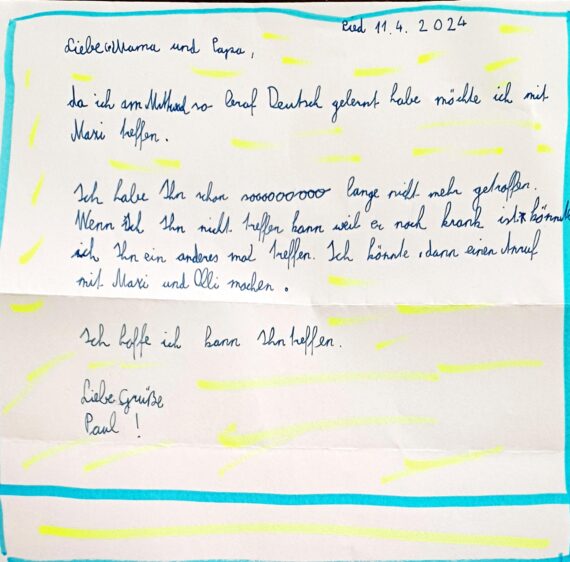 Ried 11.4. 2024
Liebe Mama und Papa,
da ich am Mittwoch so brav Deutsch gelernt habe möchte ich mit
Maxi treffen.
Ich habe Ihn schon sooooooooo lange nicht mehr getroffen.
Wenn Ich Ihn nicht treffen kann weil er noch krank ist könnte
ich Ihn ein anderes mal treffen. Ich könnte, dann einen Anruf
mit Maxi und Olli machen.
Ich hoffe ich kann Ihn treffen.
Liebe Grüße
Paul !